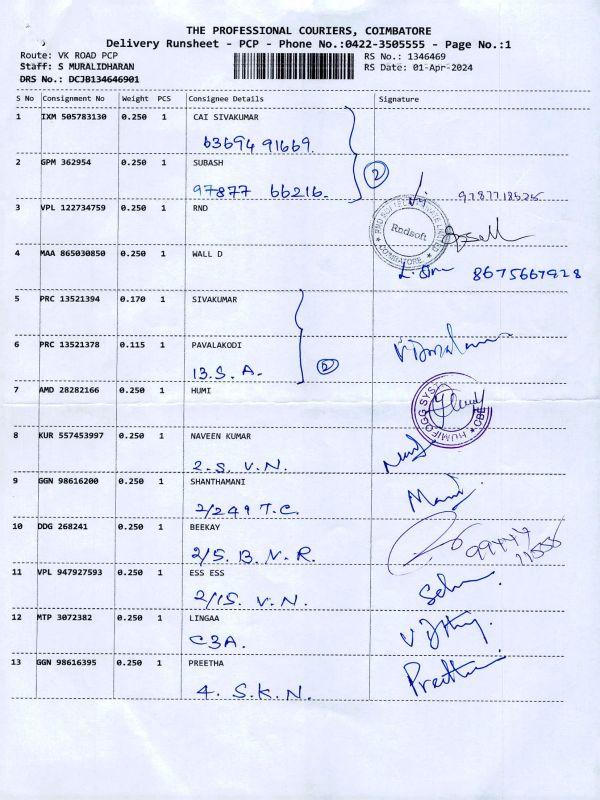 THE PROFESSIONAL COURIERS, COIMBATORE
Delivery Runsheet - PCP - Phone No.:0422-3505555 - Page No.:1
Route: VK ROAD PCP RS No.: 1346469
Staff: S MURALIDHARAN RS Date: 01-Apr-2024
DRS No.: DCJB134646901
S No Consignment No Weight PCS Consignee Details Signature
1 IXM 505783130 0.250 1 CAI SIVAKUMAR
63694 91669.
2 GPM 362954 0.250 1 SUBASH
97877 66216. 2
9787718525
3 VPL 122734759 0.250 1 RND
RND SOFTECH PRIVATE LIMITED
Rndsoft
COIMBATORE
4 MAA 865030850 0.250 1 WALL D
8675667928
5 PRC 13521394 0.170 1 SIVAKUMAR
6 PRC 13521378 0.115 1 PAVALAKODI
13. S. A. 2
7 AMD 28282166 0.250 1 HUMI
HUMIFOGG SYST CBE
8 KUR 557453997 0.250 1 NAVEEN KUMAR
2. S. V. N.
9 GGN 98616200 0.250 1 SHANTHAMANI
2/249 T.C.
10 DDG 268241 0.250 1 BEEKAY
2/5. B. N. R.
11 VPL 947927593 0.250 1 ESS ESS
2/15. V. N.
12 MTP 3072382 0.250 1 LINGAA
C3A.
13 GGN 98616395 0.250 1 PREETHA
4. S. K. N. Preetha